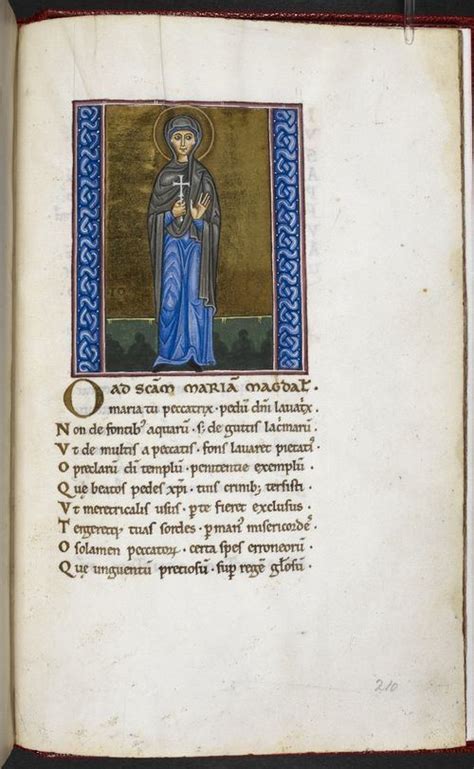 AD SCĀM MARIĀ MAGDAł.
O maria tu peccatrix · pedū dnī lauatͥx ·
Non de fontib; aquarū · sꝫ de guttis lacͥmarū
Vt de multis a peccatis · fons lauaret pietatiˀ
O preclarū dī templū · penitentie exemplū ·
Que beatos pedes xp̄ı · tuis crinib; tersisti ·
Vt meretricalis usus · p te fieret exclusus ·
Tergeretqꝫ tuas sordes · p manꝰ misericordeˀ
O solamen peccatoꝝ · certa spes erroneorū ·
Que unguentū preciosū · sup regē głosū ·
210